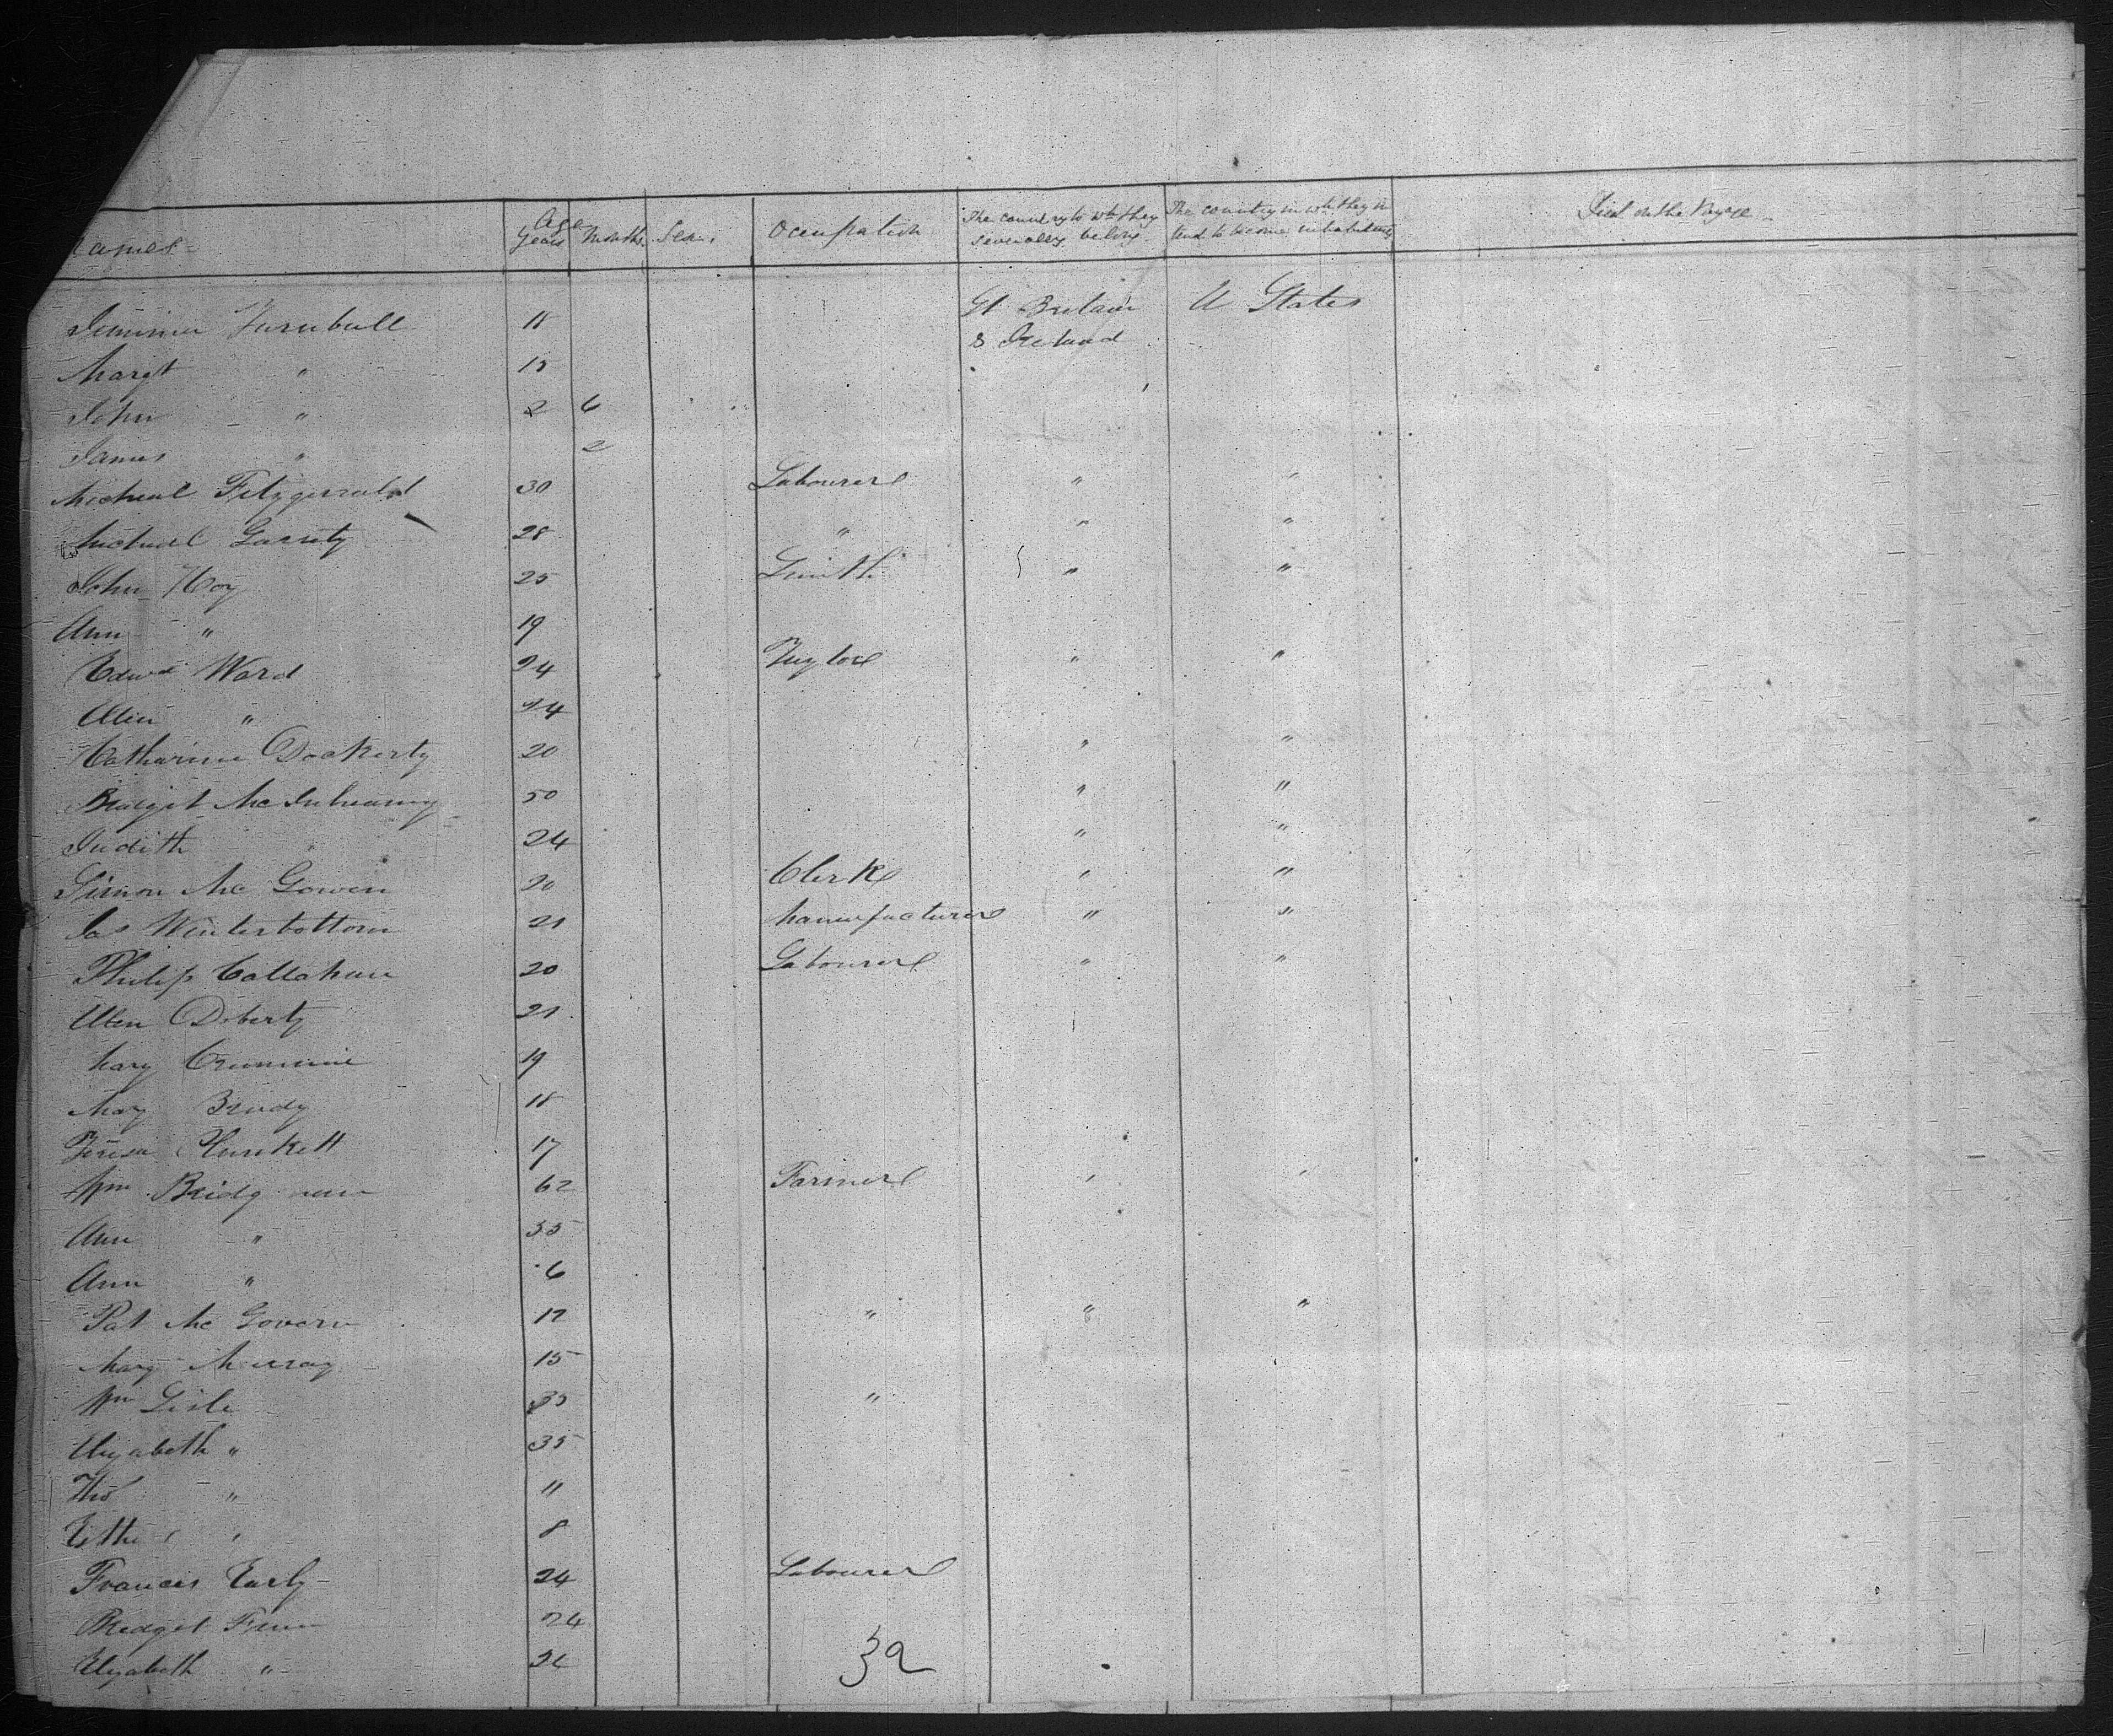 Names Age Years Months Sex Occupation The country to wh they severally belong The country in wh they intend to become inhabitants Died on the Voyage
Turnbull 18 Gt Britain & Ireland U States
Margt " 15
John " 2 6
James " 2
Micheal Fitzgerald 30 Labourer " "
Micheal Garrety 28 " " "
John Hoy 25 Smith " "
Ann " 19
Edwd Ward 24 Taylor " "
Ellen " 24
Catharine Dockerty 20 " "
Bridgit Mc 50 " "
Judith 24 " "
Simon Mc Gowen 20 Clerk " "
Jas Winterbottom 21 Manufacturer " "
Philip Callahan 20 Labourer " "
Ellen Doherty 21
Mary 19
Mary Brady 18
Teresa Plunkett 17
Wm Bridg 62 Farmer " "
Ann " 55
Ann " 6
Pat Mc Govern 17 " " "
Mary Murray 15
Wm Lisle 35 "
Elizabeth " 35
Thos " 11
Esther " 8
Francis Early 24 Labourer
Bridget 24
Elizabeth " 26
32